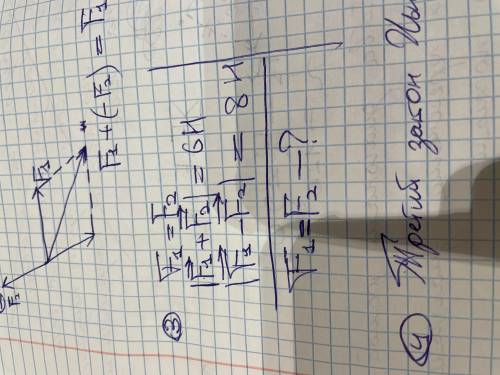 F₁
F₁
F₁ + (-F₂) = F₁
③ F₁ = F₂
|F₁ + F₂| = 6Н
|F₁ - F₂| = 8Н
F₁ = F₂ - ?
④ Третий закон